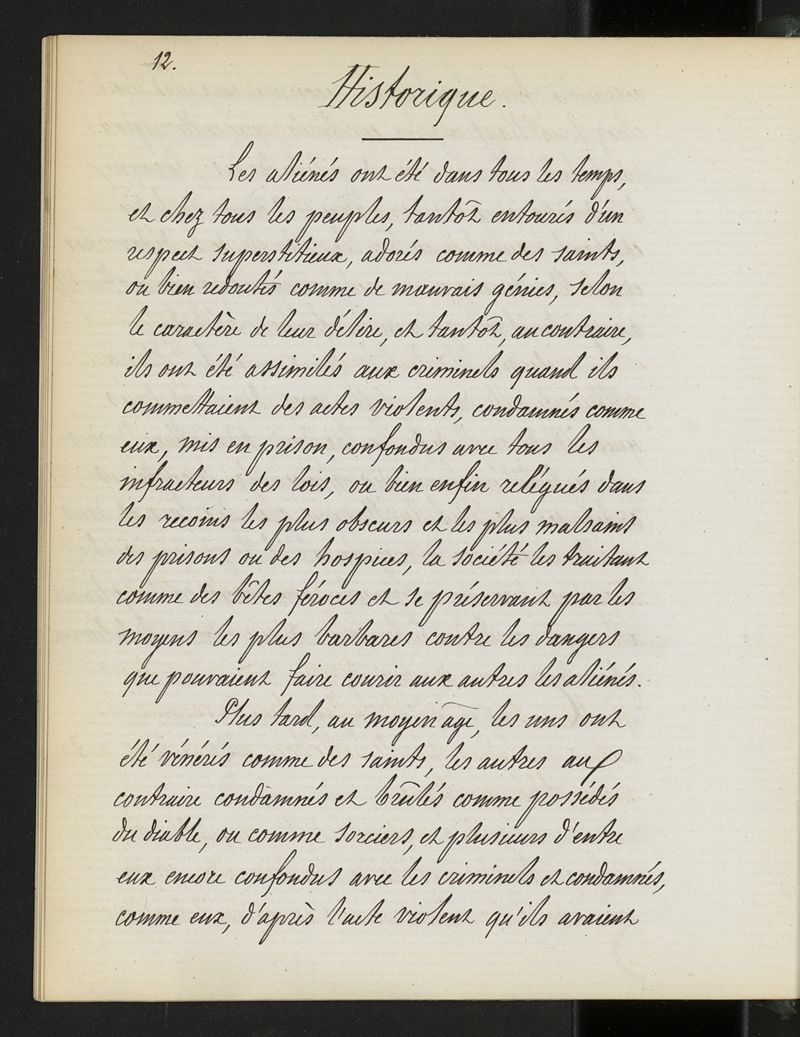 12.
Historique.
Les aliénés ont été dans tous les temps,
et chez tous les peuples, tantôt entourés d'un
respect superstitieux, adorés comme des saints,
ou bien redoutés comme de mauvais génies, selon
le caractère de leur délire, et tantôt, au contraire,
ils ont été assimilés aux criminels quand ils
commettaient des actes violents, condamnés comme
eux, mis en prison, confondus avec tous les
infracteurs des lois, ou bien enfin relégués dans
les recoins les plus obscurs et les plus malsains
des prisons ou des hospices, la société les traitant
comme des bêtes féroces et se préservant par les
moyens les plus barbares contre les dangers
que pouvaient faire courir aux autres les aliénés.
Plus tard, au moyen âge, les uns ont
été vénérés comme des saints, les autres au
contraire condamnés et brûlés comme possédés
du diable, ou comme sorciers, et plusieurs d'entre
eux encore confondus avec les criminels et condamnés,
comme eux, d'après l'acte violent qu'ils avaient